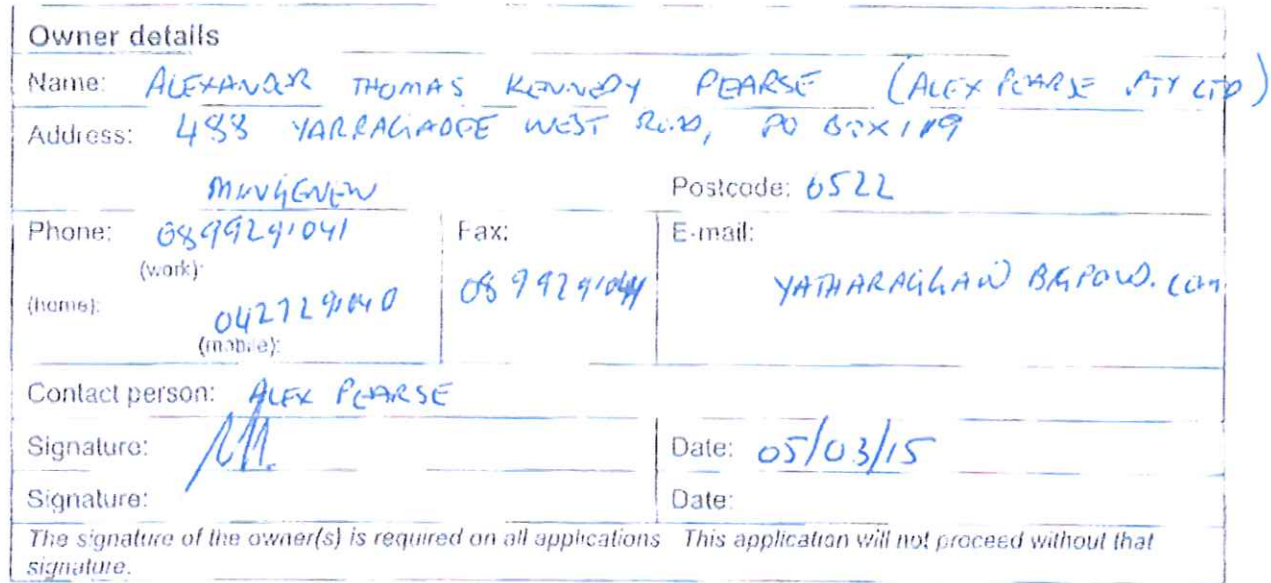 Owner details
Name: ALEXANDER THOMAS KENNEDY PEARSE (ALEX PEARSE PTY LTD)
Address: 488 YARRAGADEE WEST ROAD, PO BOX 119
MINGENEW Postcode: 6522
Phone: 0899291041 Fax: E-mail:
(work):
(home): 0899291044 YATHARAGGA@ BIGPOND.com
0427291040
(mobile):
Contact person: ALEX PEARSE
Signature: Date: 05/03/15
Signature: Date:
The signature of the owner(s) is required on all applications This application will not proceed without that
signature.